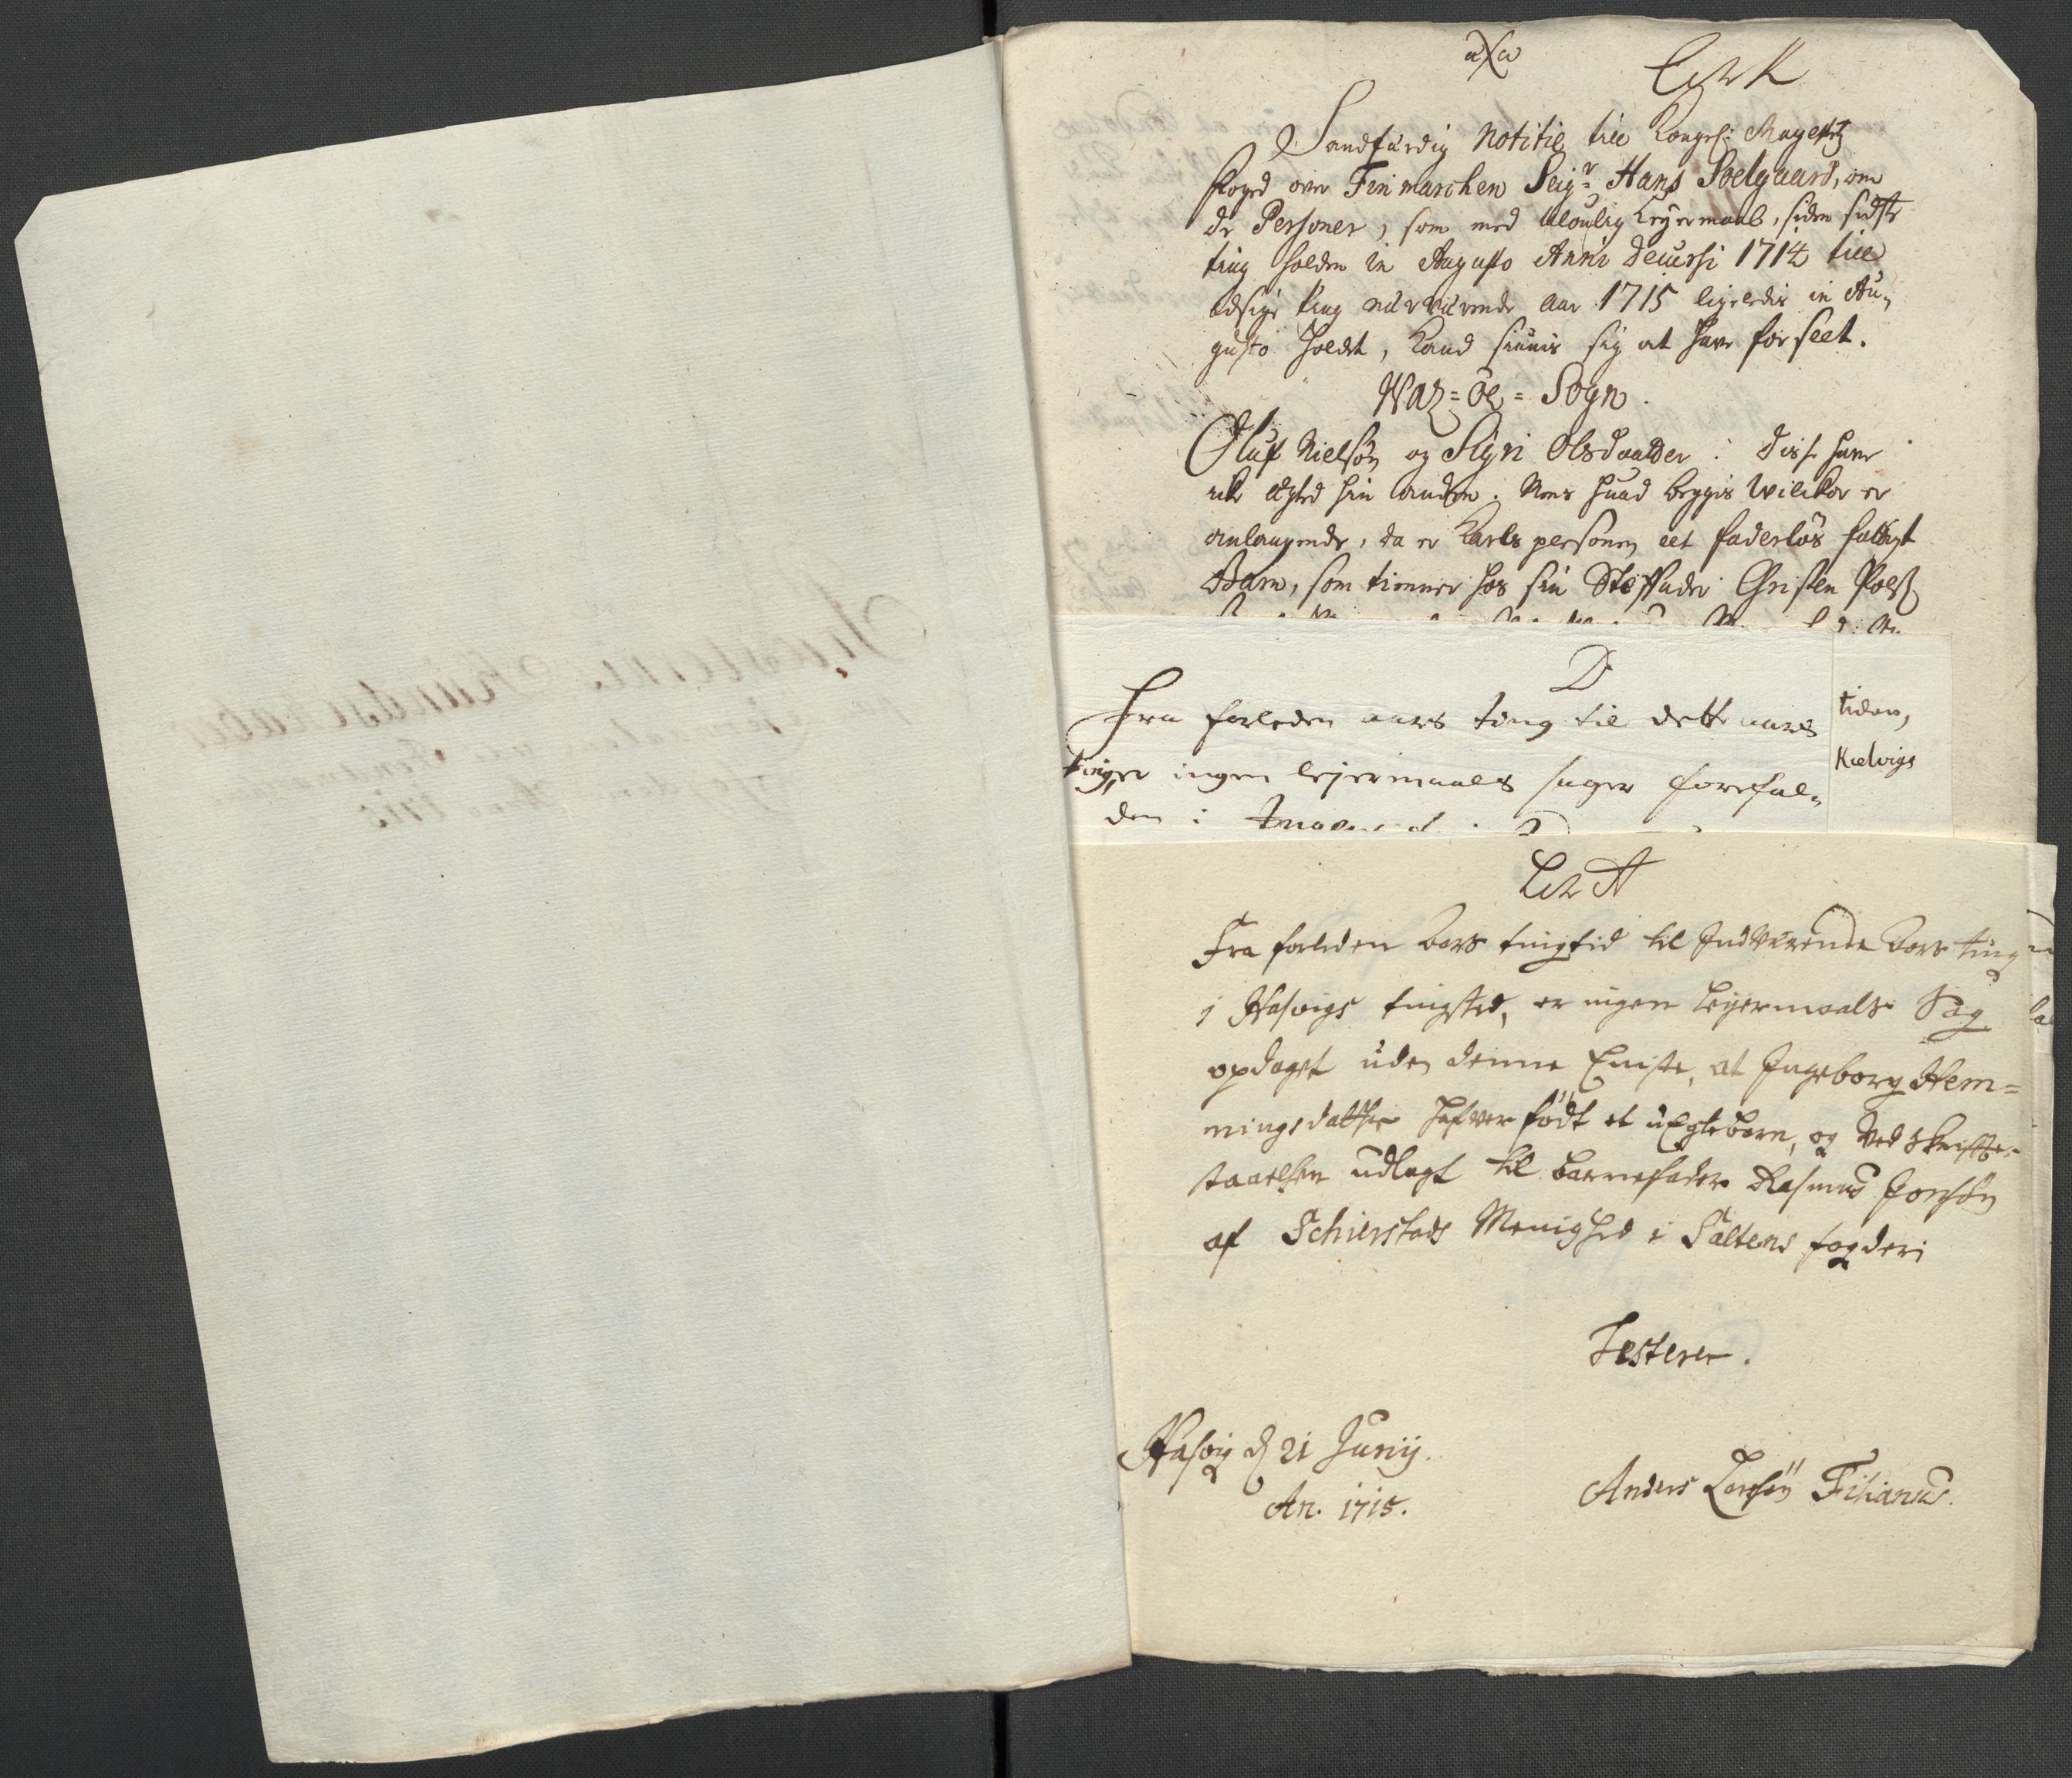 Litr K
Sandfærdig Notitie till Kongel: Mayestetz
foged over Finmarchen Seigr Hans Soelgaard, om
de Personer, som med ulovlig Leyermaal, siden sidste
ting holden in Augusto Anni decursi 1714 till
ting nærværende aar 1715 ligeledis in Au-
gusto holdet, kand finnis sig at have forseet.
Waz-öe-Sogn.
Oluf Nielsön og Sigri Olsdaatter: disse have
hin anden. Mens huad beggis Wilckor er
anlangende, da er Karls personen eet faderlös fattigt
Barn, som tienner hos sin Steffader Christen Pols:
D
Fra forleden aars ting til dette aars
ting, er ingen lejermaals sager forefal-
den i
tiden,
Kielvigs
Litr A
Fra forleden Aars tingtid til Indværende Aars ting
i Hasvigs tingsted, er ingen Leyermaals Sag
opdaget uden denne Eniste, at Ingeborg Hem=
mingsdatter hafver födt et uEgte barn, og Ved Skrifte-
staaelsen udlagt til barnefader Rasmus Jonsön
af Schierstads Menighed i Saltens fogderi
Testerer.
Hasvig d 21 Junij.
An. 1715.
Anders Larsön Titianus.